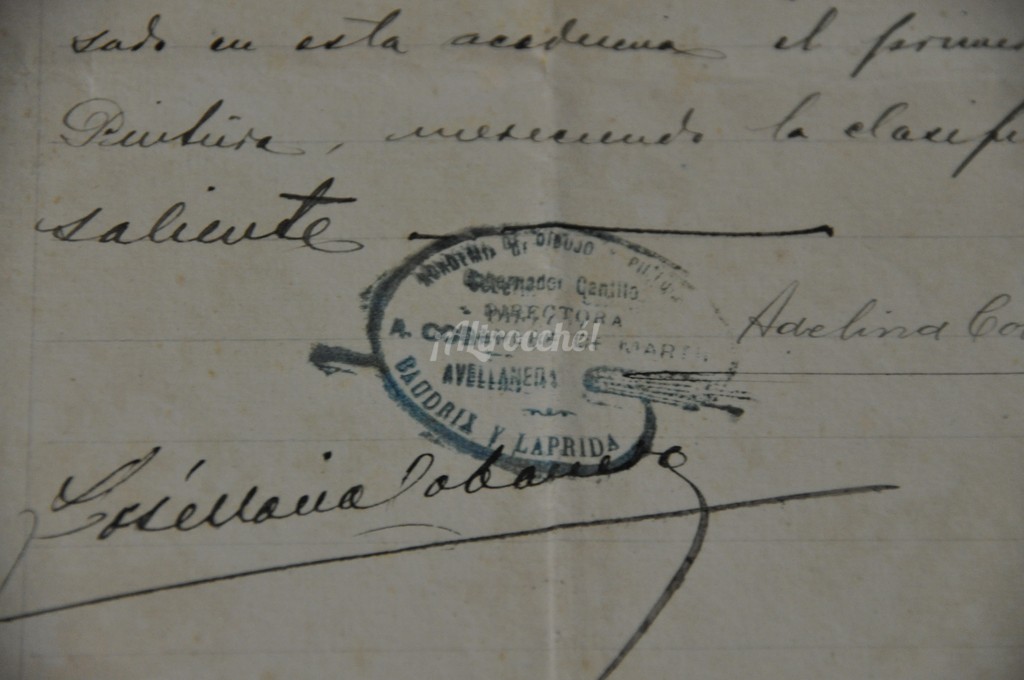 sado en esta academia el primer
Pintura, mereciendo la clasifi
saliente
ACADEMIA DE DIBUJO - PINTURA
Gobernador Cantilo
DIRECTORA
A. DE MARTI
AVELLANEDA
BAUDRIX Y LAPRIDA
Altrocché!
Adelina Co
José Maria